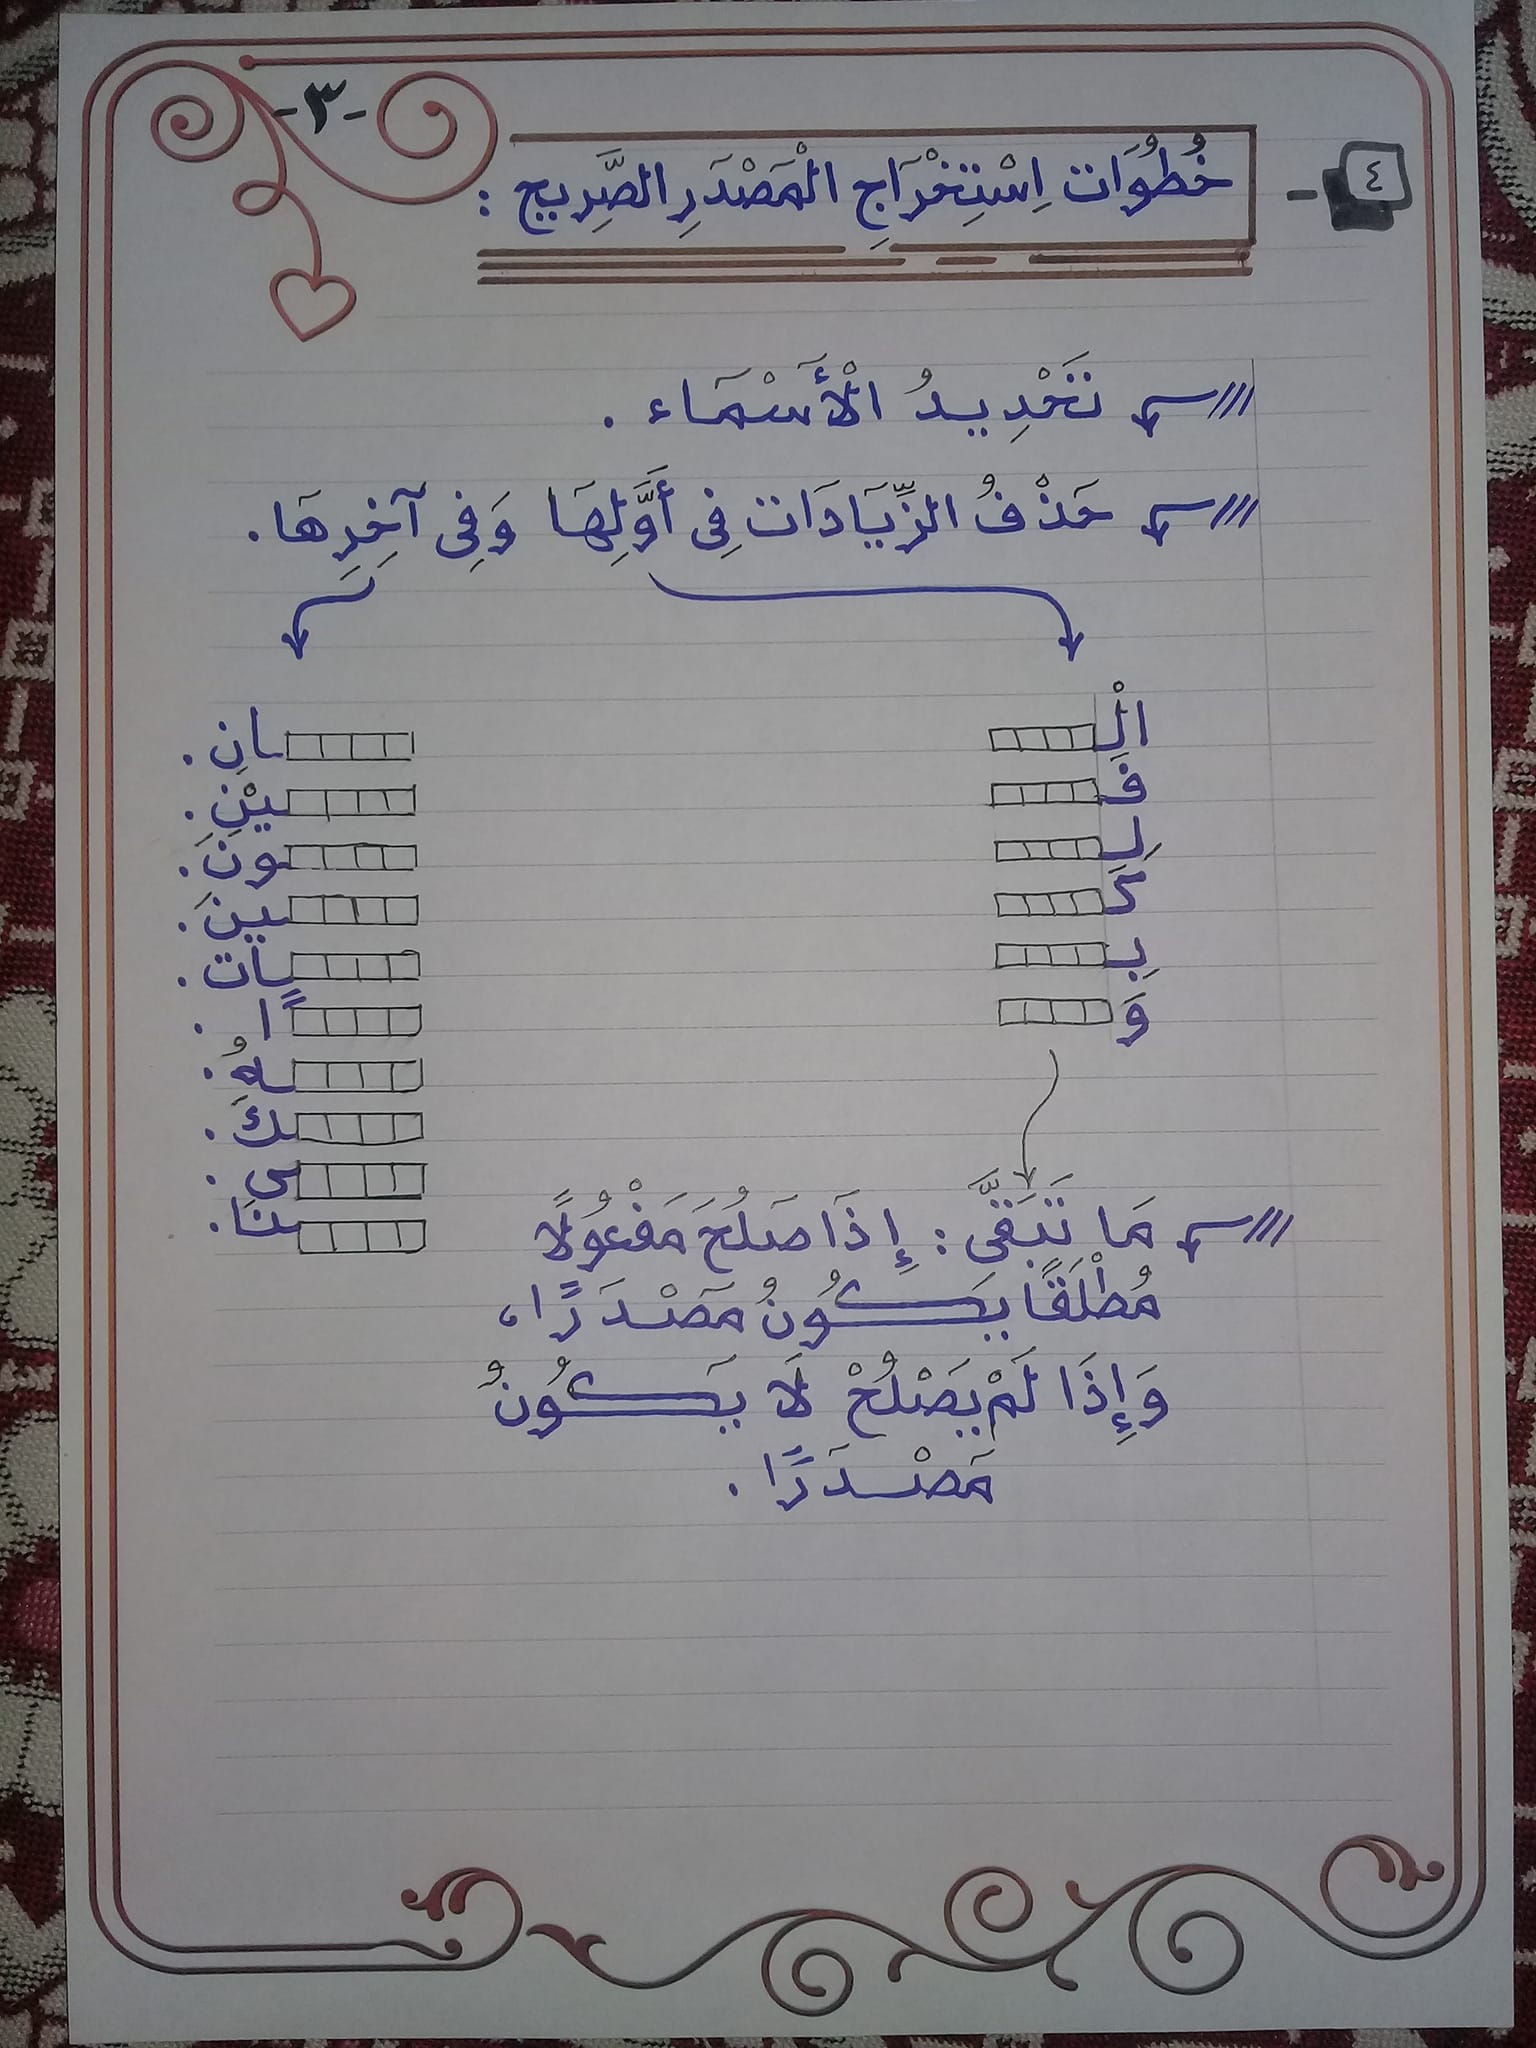 -٣-
٤ - خُطُوَات اِسْتِخْرَاجِ الْمَصْدَرِ الصَّرِيح :
تَحْدِيدُ الْأَسْمَاء .
حَذْفُ الزِّيَادَات فِي أَوَّلِهَا وَفِي آخِرِهَا.
الْـ
فَـ
لِـ
كَـ
بِـ
وَ
ـانِ .
ـيْنِ .
ـونَ .
ـينَ .
ـات .
ـًا .
ـهُ .
ـكَ .
ـي .
ـنَا .
مَا تَبَقَّى : إِذَا صَلُحَ مَفْعُولًا
مُطْلَقًا يَكُونُ مَصْدَرًا،
وَإِذَا لَمْ يَصْلُحْ لَا يَكُونُ
مَصْدَرًا .